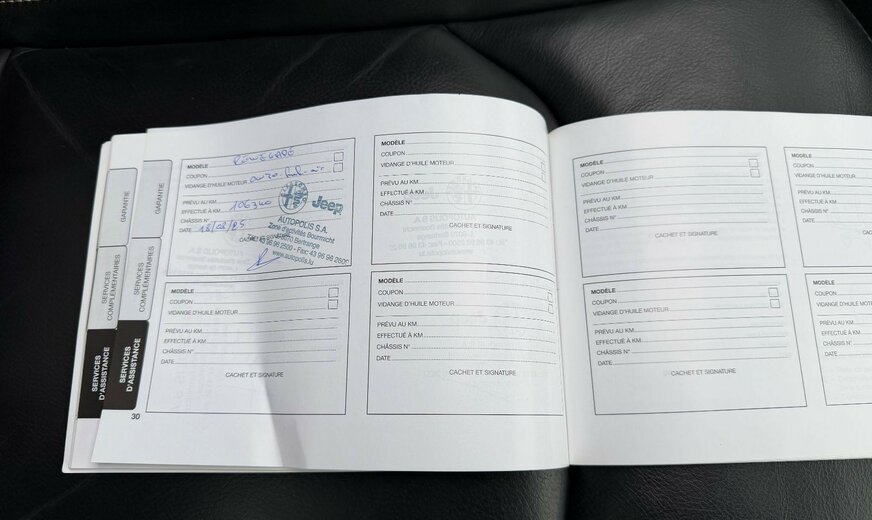 GARANTIE
GARANTIE
SERVICES COMPLÉMENTAIRES
SERVICES COMPLÉMENTAIRES
SERVICES D'ASSISTANCE
SERVICES D'ASSISTANCE
MODÈLE RENEGADE
COUPON
VIDANGE D'HUILE MOTEUR
PRÉVU AU KM
EFFECTUÉ À KM 106340
CHÂSSIS N°
DATE
Jeep
AUTOPOLIS S.A.
Zone d'activités Bourmicht
L-8070 Bertrange
Tél. 43 96 96 2500 - Fax: 43 96 96 2600
www.autopolis.lu
MODÈLE
COUPON
VIDANGE D'HUILE MOTEUR
PRÉVU AU KM
EFFECTUÉ À KM
CHÂSSIS N°
DATE
CACHET ET SIGNATURE
MODÈLE
COUPON
VIDANGE D'HUILE MOTEUR
PRÉVU AU KM
EFFECTUÉ À KM
CHÂSSIS N°
DATE
CACHET ET SIGNATURE
MODÈLE
COUPON
VIDANGE D'HUILE MOTEUR
PRÉVU AU KM
EFFECTUÉ À KM
CHÂSSIS N°
DATE
CACHET ET SIGNATURE
30
MODÈLE
COUPON
VIDANGE D'HUILE MOTEUR
PRÉVU AU KM
EFFECTUÉ À KM
CHÂSSIS N°
DATE
CACHET ET SIGNATURE
MODÈLE
COUPON
VIDANGE D'HUILE MOTEUR
PRÉVU AU KM
EFFECTUÉ À KM
CHÂSSIS N°
DATE
CACHET ET SIGNATURE
MODÈLE
COUPON
VIDANGE D'HUILE MOTEUR
PRÉVU AU KM
EFFECTUÉ À KM
CHÂSSIS N°
DATE
MODÈLE
COUPON
VIDANGE D'HUILE MOTEUR
PRÉVU AU KM
EFFECTUÉ À KM
CHÂSSIS N°
DATE